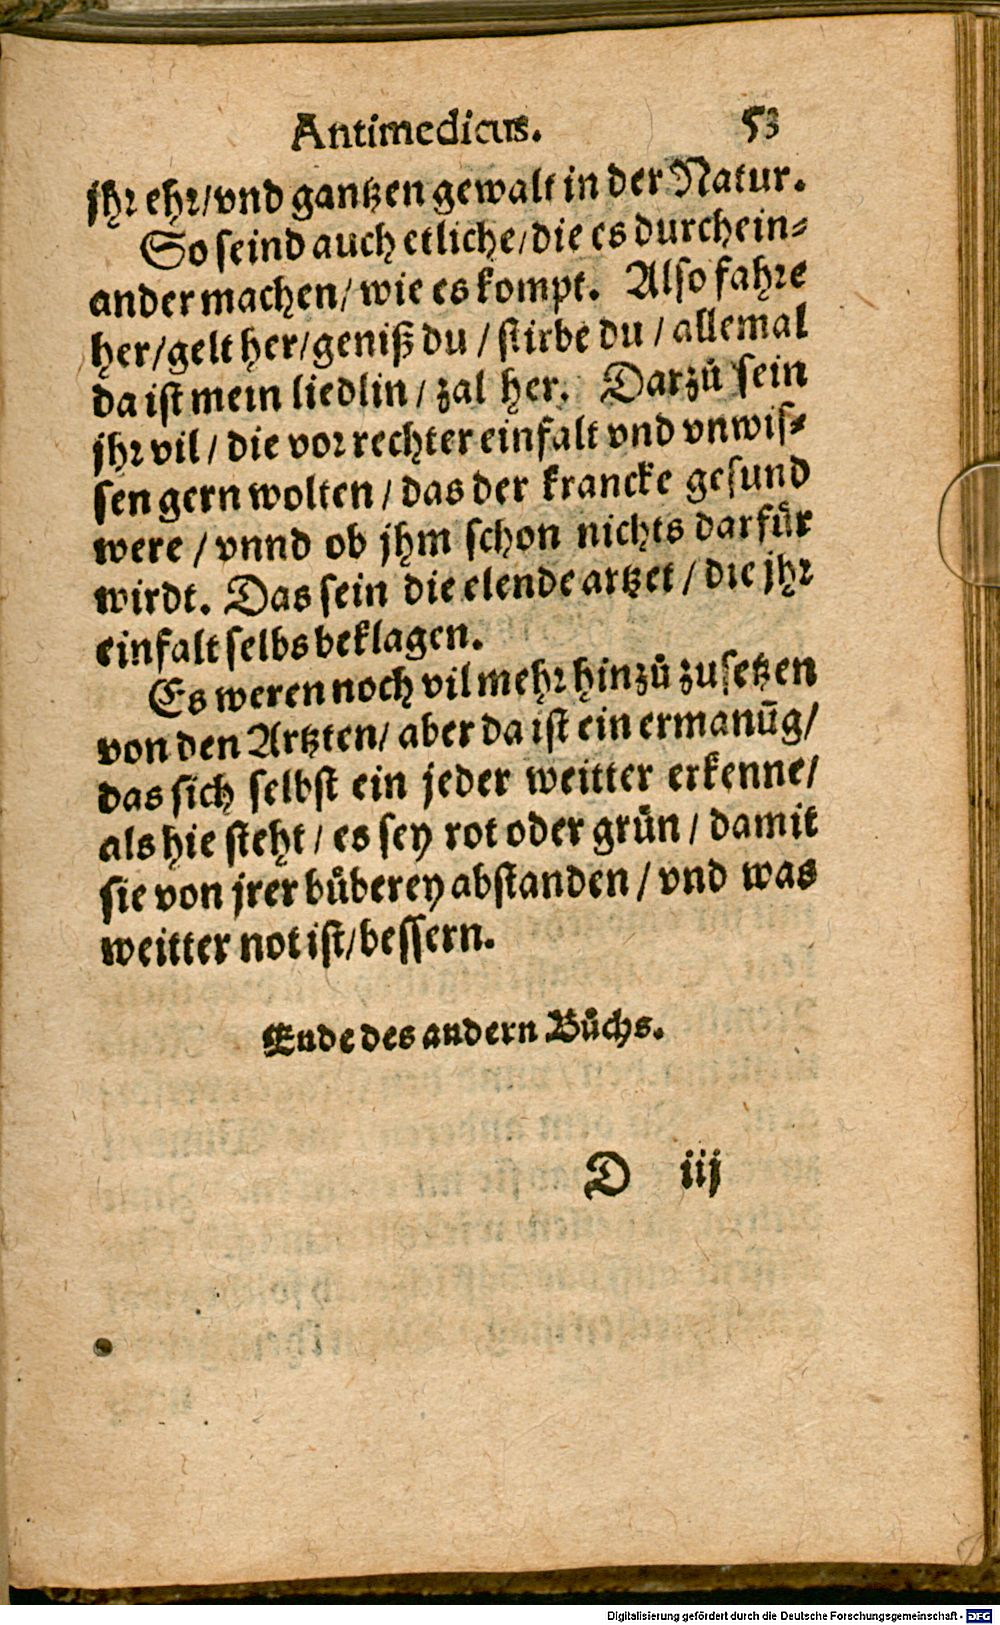 Antimedicus. 53
jhr ehr/vnd gantzen gewalt in der Natur.
So seind auch etliche/die es durchein-
ander machen/wie es kompt. Also fahre
her/gelt her/geniß du/stirbe du/allemal
da ist mein liedlin/zal her. Darzů sein
jhr vil/die vor rechter einfalt vnd vnwis-
sen gern wolten/das der krancke gesund
were/vnnd ob jhm schon nichts darfür
wirdt. Das sein die elende artzet/die jhr
einfalt selbs beklagen.
Es weren noch vil mehr hinzů zu setzen
von den Artzten/aber da ist ein ermanūg/
das sich selbst ein jeder weitter erkenne/
als hie steht/es sey rot oder grün/damit
sie von jrer bůberey abstanden/vnd was
weitter not ist/bessern.
Ende des andern Bůchs.
D iij
Digitalisierung gefördert durch die Deutsche Forschungsgemeinschaft - DFG